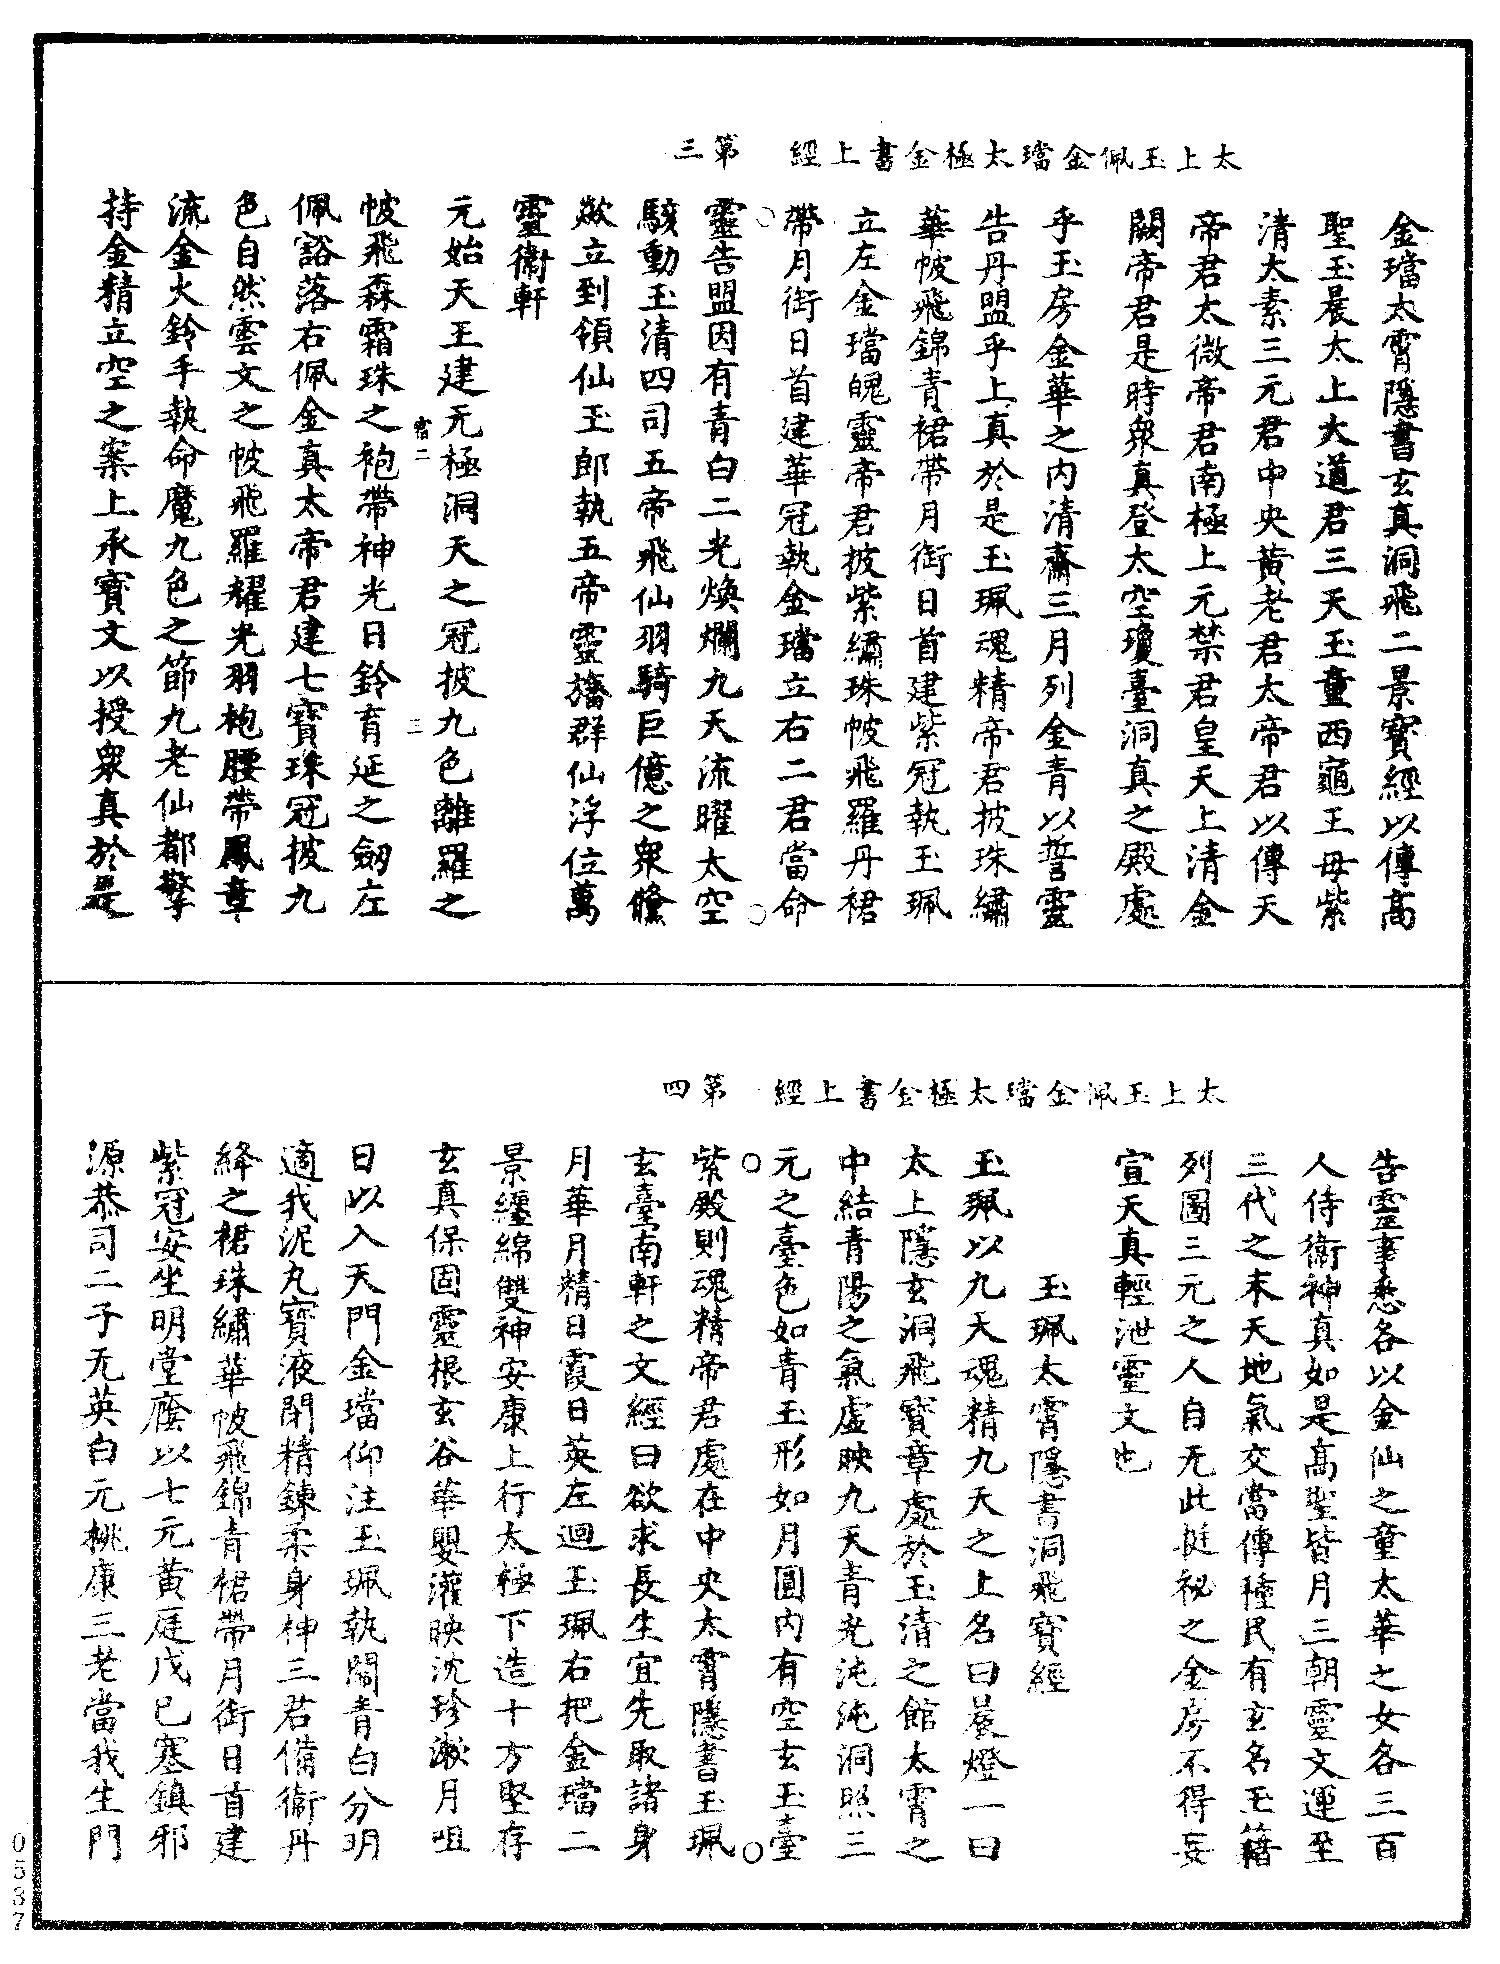 太上玉佩金璫太極金書上經　第三
金璫太霄隱書玄真洞飛二景寶經以傳高
聖玉晨太上大道君三天玉童西龜王母紫
清太素三元君中央黃老君太帝君以傳天
帝君太微帝君南極上元禁君皇天上清金
闕帝君是時衆真登太空瓊臺洞真之殿處
乎玉房金華之内清齋三月列金青以誓靈
告丹盟乎上真於是玉珮魂精帝君披珠繡
華帔飛錦青裙帶月銜日首建紫冠執玉珮
立左金璫魄靈帝君披紫繡珠帔飛羅丹裙
帶月銜日首建華冠執金璫立右二君當命
靈告盟因有青白二光煥爛九天流曜太空
駭動玉清四司五帝飛仙羽騎巨億之衆儵
歘立到領仙玉郎執五帝靈旛群仙浮位萬
靈衛軒
元始天王建无極洞天之冠披九色離羅之
帔飛森霜珠之袍帶神光日鈴育延之劒左
宿二
三
佩豁落右佩金真太帝君建七寶珠冠披九
色自然雲文之帔飛羅耀光羽袍腰帶鳳章
流金火鈴手執命魔九色之節九老仙都擎
持金精立空之案上承寶文以授衆真於是
太上玉佩金璫太極金書上經　第四
告靈事悉各以金仙之童太華之女各三百
人侍衛神真如是高聖皆月三朝靈文運至
三代之末天地氣交當傳種民有玄名玉籍
列圖三元之人自无此挺祕之金房不得妄
宣天真輕泄靈文也
玉珮太霄隱書洞飛寶經
玉珮以九天魂精九天之上名曰晨燈一曰
太上隱玄洞飛寶章處於玉清之館太霄之
中結青陽之氣虛映九天青光沌沌洞照三
元之臺色如青玉形如月圓内有空玄玉臺
紫殿則魂精帝君處在中央太霄隱書玉珮
玄臺南軒之文經曰欲求長生宜先取諸身
月華月精日霞日英左迴玉珮右把金璫二
景纏綿雙神安康上行太極下造十方堅存
玄真保固靈根玄谷華嬰灌映沈珍漱月咀
日以入天門金璫仰注玉珮執闔青白分明
適我泥丸寶液閉精鍊柔身神三君備衛丹
絳之裙珠繡華帔飛錦青裙帶月銜日首建
紫冠安坐明堂䧹以七元黃庭戊巳塞鎮邪
源恭司二子无英白元桃康三老當我生門
0537